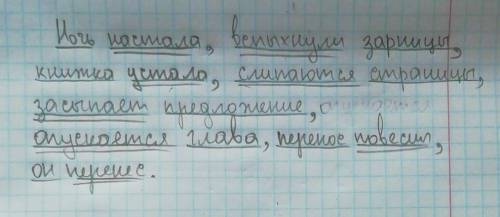 Ночь настала, вспыхнули зарницы,
книжка устала, слипаются страницы,
засыпает предложение,
опускается глава, перенос повесил,
он перенес.